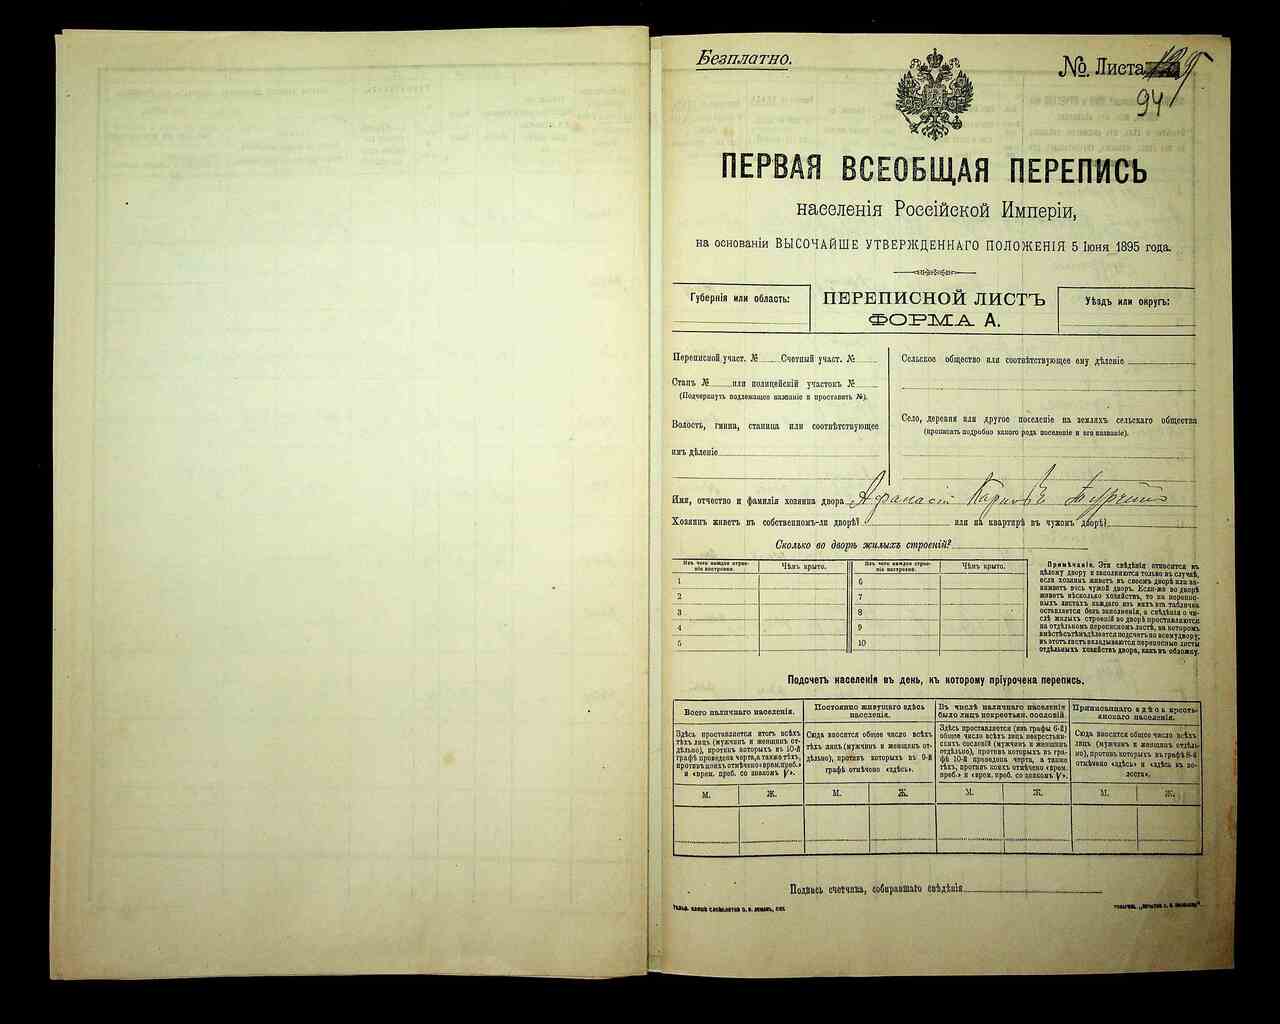 Безплатно.
№ Листа
94
ПЕРВАЯ ВСЕОБЩАЯ ПЕРЕПИСЬ
населенія Россійской Имперіи,
на основаніи ВЫСОЧАЙШЕ УТВЕРЖДЕННАГО ПОЛОЖЕНІЯ 5 Іюня 1895 года.
Губернія или область:
ПЕРЕПИСНОЙ ЛИСТЪ
ФОРМА А.
Уѣздъ или округъ:
Переписной участ. № Счетный участ. №
Станъ № или полицейскій участокъ №
(Подчеркнуть подлежащее названіе и проставить №).
Волость, гмина, станица или соотвѣтствующее
имъ дѣленіе
Сельское общество или соотвѣтствующее ему дѣленіе
Село, деревня или другое поселеніе на земляхъ сельскаго общества
(прописать подробно какого рода поселеніе и его названіе).
Имя, отчество и фамилія хозяина двора Афанасій
Хозяинъ живетъ въ собственномъ-ли дворѣ? или на квартирѣ въ чужомъ дворѣ?
Сколько во дворѣ жилыхъ строеній?
Изъ чего каждое строе-
ніе построено.
Чѣмъ крыто.
Изъ чего каждое строе-
ніе построено.
Чѣмъ крыто.
1 6
2 7
3 8
4 9
5 10
Примѣчаніе. Эти свѣдѣнія относятся къ
цѣлому двору и заполняются только въ случаѣ,
если хозяинъ живетъ въ своемъ дворѣ или за-
нимаетъ весь чужой дворъ. Если-же во дворѣ
живетъ нѣсколько хозяйствъ, то на перепис-
ныхъ листахъ каждаго изъ нихъ эта табличка
оставляется безъ заполненія, а свѣдѣнія о чи-
слѣ жилыхъ строеній во дворѣ проставляются
на отдѣльномъ переписномъ листѣ, на которомъ
вмѣстѣ съ тѣмъ дѣлается подсчетъ по всему двору;
въ этотъ листъ вкладываются переписные листы
отдѣльныхъ хозяйствъ двора, какъ въ обложку.
Подсчетъ населенія въ день, къ которому пріурочена перепись.
Всего наличнаго населенія.
Здѣсь проставляется итогъ всѣхъ
тѣхъ лицъ (мужчинъ и женщинъ от-
дѣльно), противъ которыхъ въ 10-й
графѣ проведена черта, а также тѣхъ,
противъ коихъ отмѣчено «врем. преб.»
и «врем. преб. со знакомъ V».
Постоянно живущаго здѣсь
населенія.
Сюда вносится общее число всѣхъ
тѣхъ лицъ (мужчинъ и женщинъ от-
дѣльно), противъ которыхъ въ 9-й
графѣ отмѣчено «здѣсь».
Въ числѣ наличнаго населенія
было лицъ некрестьян. сословій.
Здѣсь проставляется (изъ графы 6-й)
общее число всѣхъ лицъ некрестьян-
скихъ сословій (мужчинъ и женщинъ
отдѣльно), противъ которыхъ въ гра-
фѣ 10-й проведена черта, а также
тѣхъ, противъ коихъ отмѣчено «врем.
преб.» и «врем. преб. со знакомъ V».
Приписаннаго здѣсь кресть-
янскаго населенія.
Сюда вносится общее число всѣхъ
лицъ (мужчинъ и женщинъ отдѣль-
но), противъ которыхъ въ графѣ 8-й
отмѣчено «здѣсь» и «здѣсь въ во-
лости».
М. Ж. М. Ж. М. Ж. М. Ж.
Подпись счетчика, собиравшаго свѣдѣнія